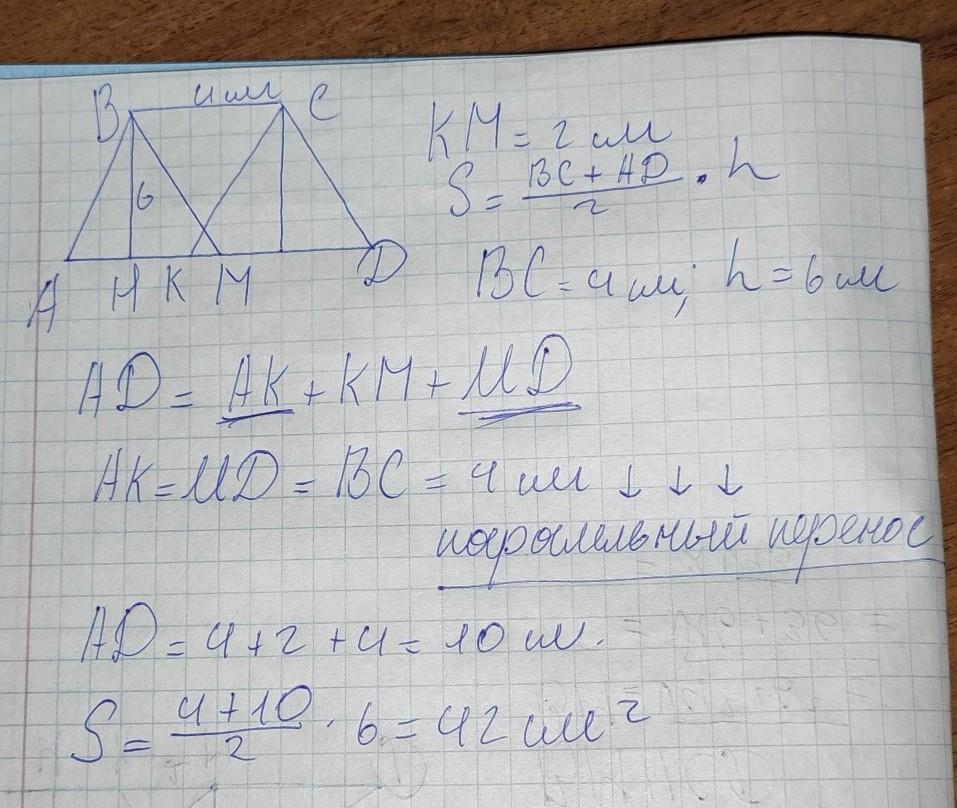 B 4 см C
6
A H K M D
KM = 2 см
S = (BC + AD)/2 · h
BC = 4 см; h = 6 см
AD = AK + KM + MD
AK = MD = BC = 4 см ↓ ↓ ↓
паралельный перенос
AD = 4 + 2 + 4 = 10 см.
S = (4 + 10)/2 · 6 = 42 см²